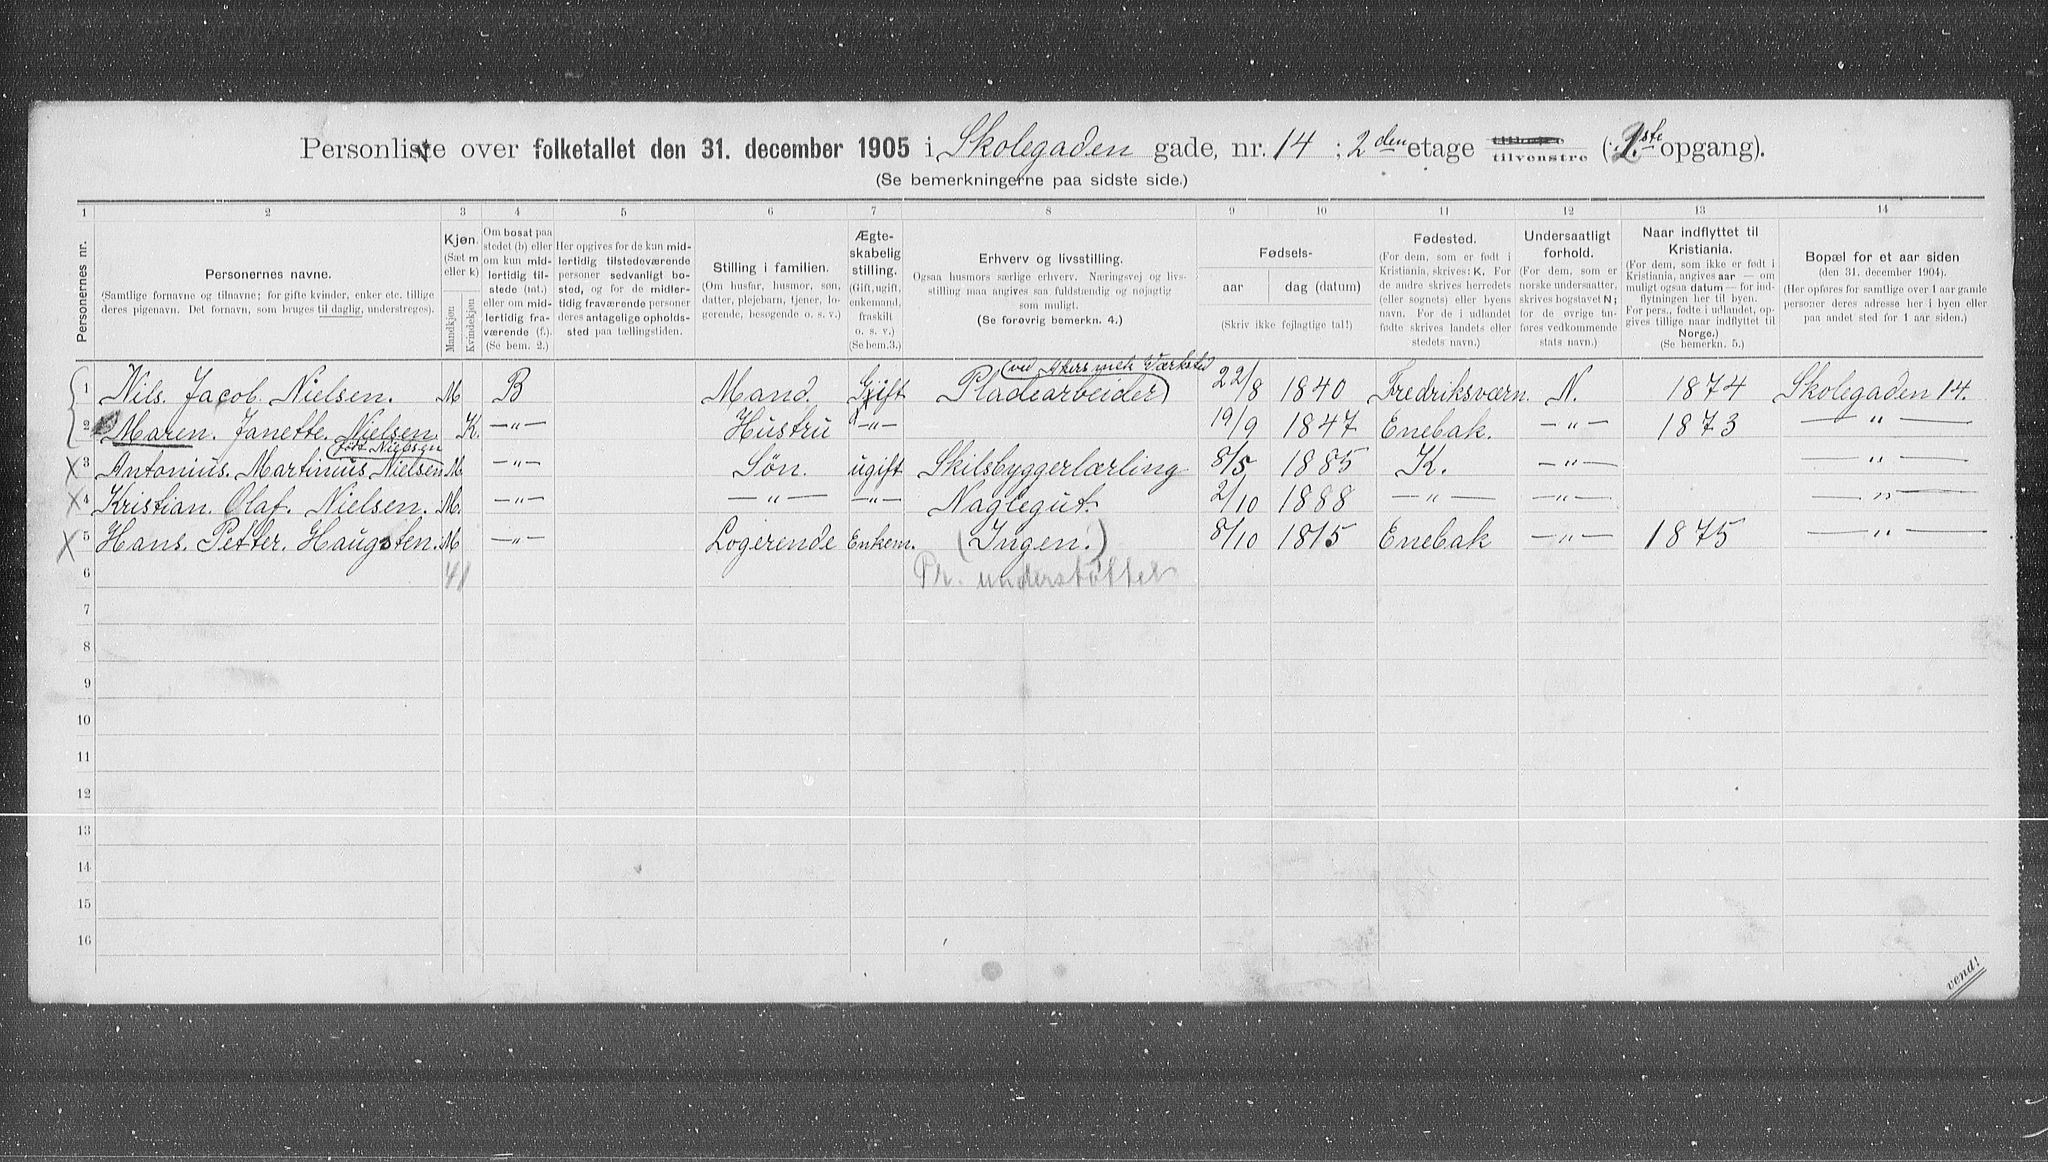 Personliste over folketallet den 31. december 1905 i Skolegaden gade, nr. 14 ; 2den etage tilvenstre (1ste opgang).
(Se bemerkningerne paa sidste side.)
1 2 3 4 5 6 7 8 9 10 11 12 13 14
Personernes nr.
Personernes navne.
(Samtlige fornavne og tilnavne; for gifte kvinder, enker etc. tillige deres pigenavn. Det fornavn, som bruges til daglig, understreges).
Kjøn.
(Sæt m eller k)
Mandkjøn Kvindekjøn
Om bosat paa stedet (b) eller om kun midlertidig tilstede (mt.) eller om midlertidig fraværende (f.).
(Se bem. 2.)
Her opgives for de kun midlertidig tilstedeværende personer sedvanligt bosted, og for de midlertidig fraværende personer deres antagelige opholdssted paa tællingstiden.
Stilling i familien.
(Om husfar, husmor, søn, datter, plejebarn, tjener, logerende, besøgende o. s. v.)
Ægteskabelig stilling.
(Gift, ugift, enkemand, fraskilt o. s. v.)
(Se bem. 3.)
Erhverv og livsstilling.
Ogsaa husmors særlige erhverv. Næringsvej og livsstilling maa angives saa fuldstændig og nøjagtig som muligt.
(Se forøvrig bemerkn. 4.)
Fødsels-
aar
dag (datum)
(Skriv ikke fejlagtige tal!)
Fødested.
(For dem, som er født i Kristiania, skrives: K. For de andre skrives herredets (eller sognets) eller byens navn. For de i udlandet fødte skrives landets eller stedets navn.)
Undersaatligt forhold.
(For dem, som er norske undersaatter, skrives bogstavet N; for de øvrige tnføres vedkommende stats navn.)
Naar indflyttet til Kristiania.
(For dem, som ikke er født i Kristiania, angives aar — om muligt ogsaa datum — for indflytningen her til byen. For pers., fødte i udlandet, opgives tillige naar indflyttet til Norge.)
(Se bemerkn. 5.)
Bopæl for et aar siden
(den 31. december 1904).
(Her opføres for samtlige over 1 aar gamle personer deres adresse her i byen eller paa andet sted for 1 aar siden.)
ved Akers mek Værksted
1 Nils. Jacob. Nielsen. M B Mand. Gift Pladearbeider 22/8 1840 Fredriksværn N. 1874 Skolegaden 14.
2 Maren. Janette. Nielsen K. —"— Hustru —"— 19/9 1847 Enebak. —"— 1873 —"—
født Nielsen
3 Antonius. Martinius Nielsen M. —"— Søn. ugift Skibsbyggerlærling 8/5 1885 K. —"— —"—
4 Kristian. Olaf. Nielsen. M. —"— —"— —"— Naglegut. 2/10 1888 —"— —"— —"—
5 Hans. Petter. Haugsten. M —"— Logerende Enkem. (Ingen.) 8/10 1815 Enebak —"— 1875 —"—
6 4/1 Pr. understøttet
7
8
9
10
11
12
13
14
15
16
vend!